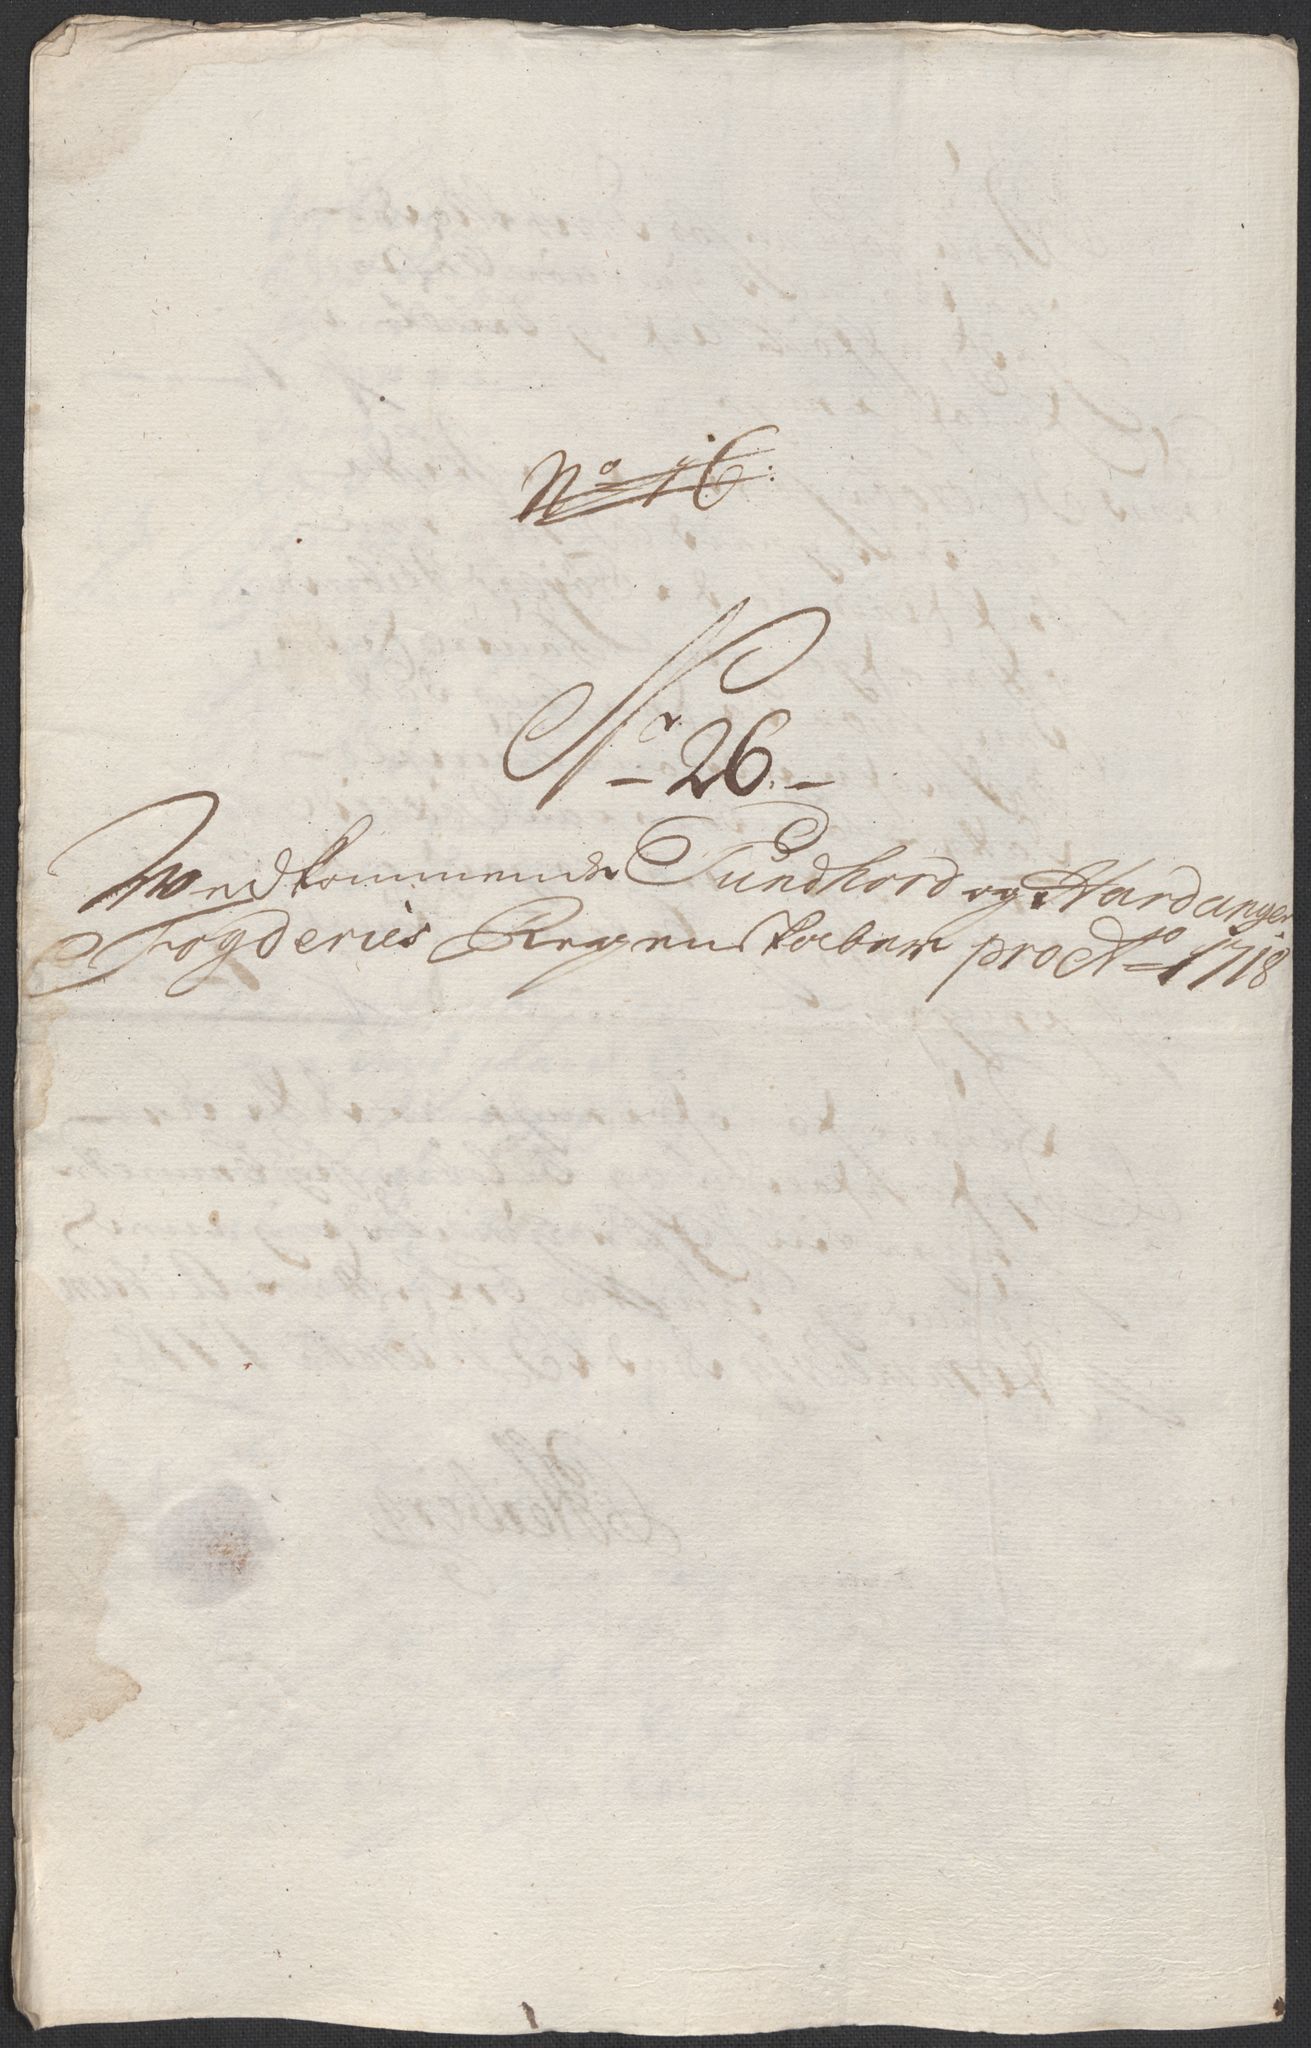 No 16:
Nr 26.
Wedkommende Sundhord og Hardanger
Fogderies Regenskaber pro Ao 1718